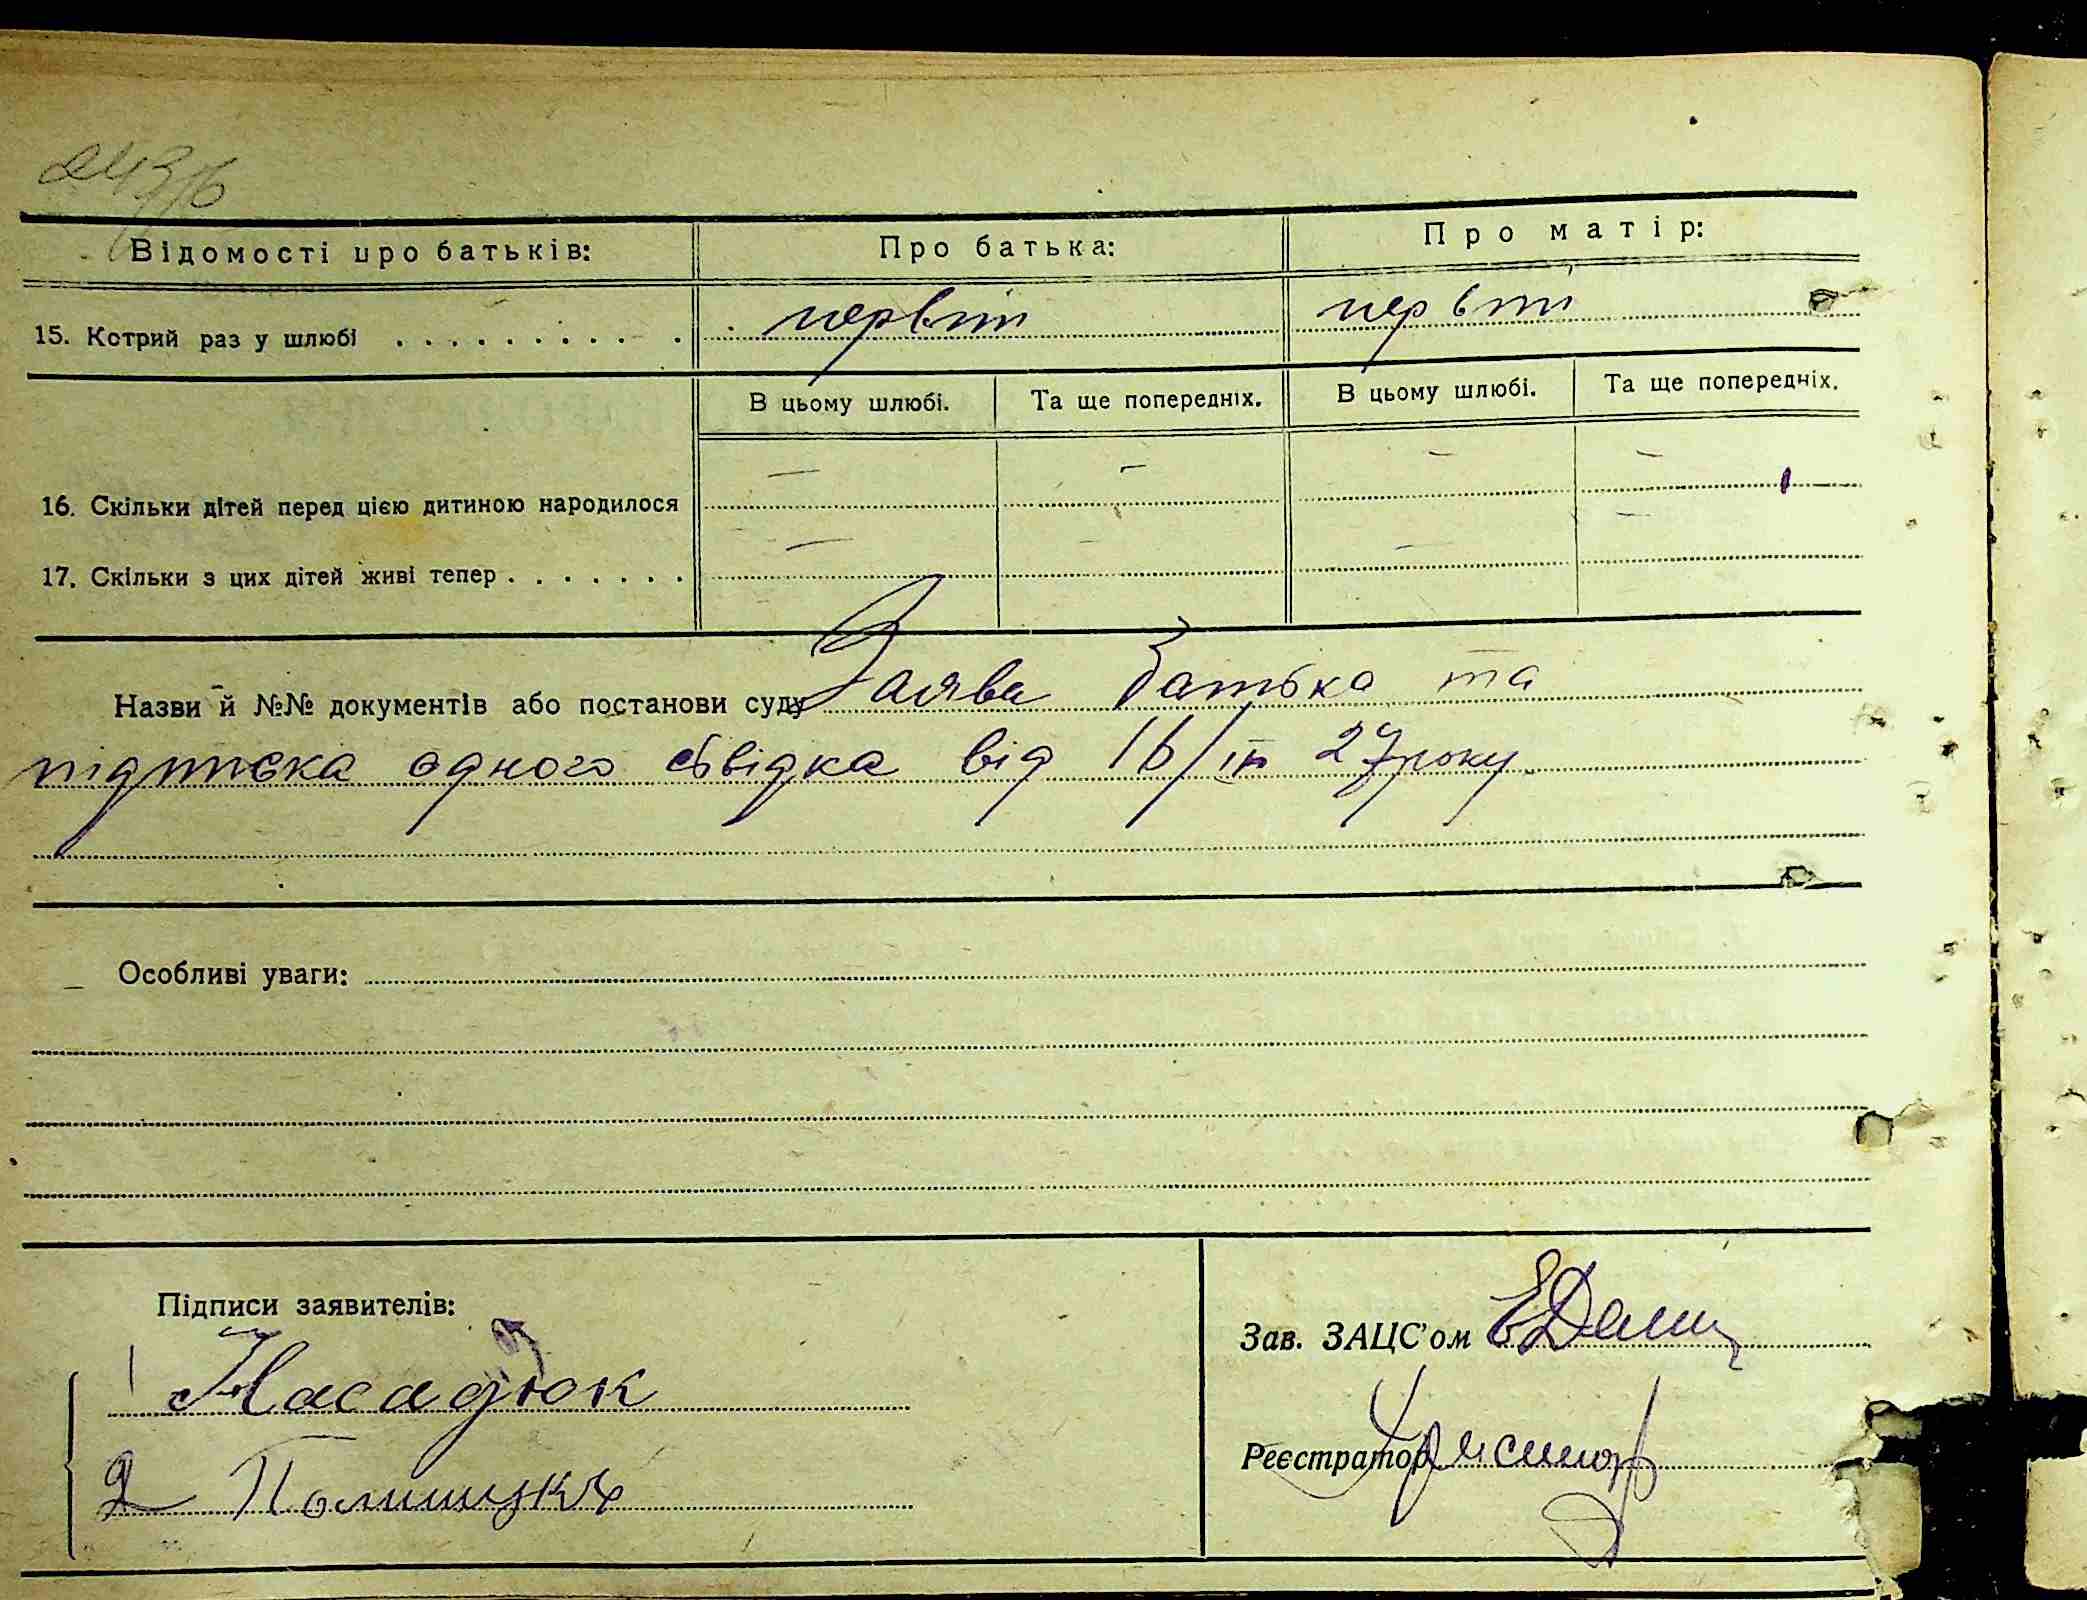 Відомості про батьків:
Про батька:
Про матір:
15. Котрий раз у шлюбі . . . . . . . . . . .
первий
первий
В цьому шлюбі.
Та ще попередніх.
В цьому шлюбі.
Та ще попередніх.
16. Скільки дітей перед цією дитиною народилося
— — — —
17. Скільки з цих дітей живі тепер . . . . . . .
— — — —
Назви й №№ документів або постанови суду Заява батька та
підписка одного свідка від 16/III 27 року
Особливі уваги:
Підписи заявителів:
1 Насадюк
2
Зав. ЗАЦС'ом
Реєстратор